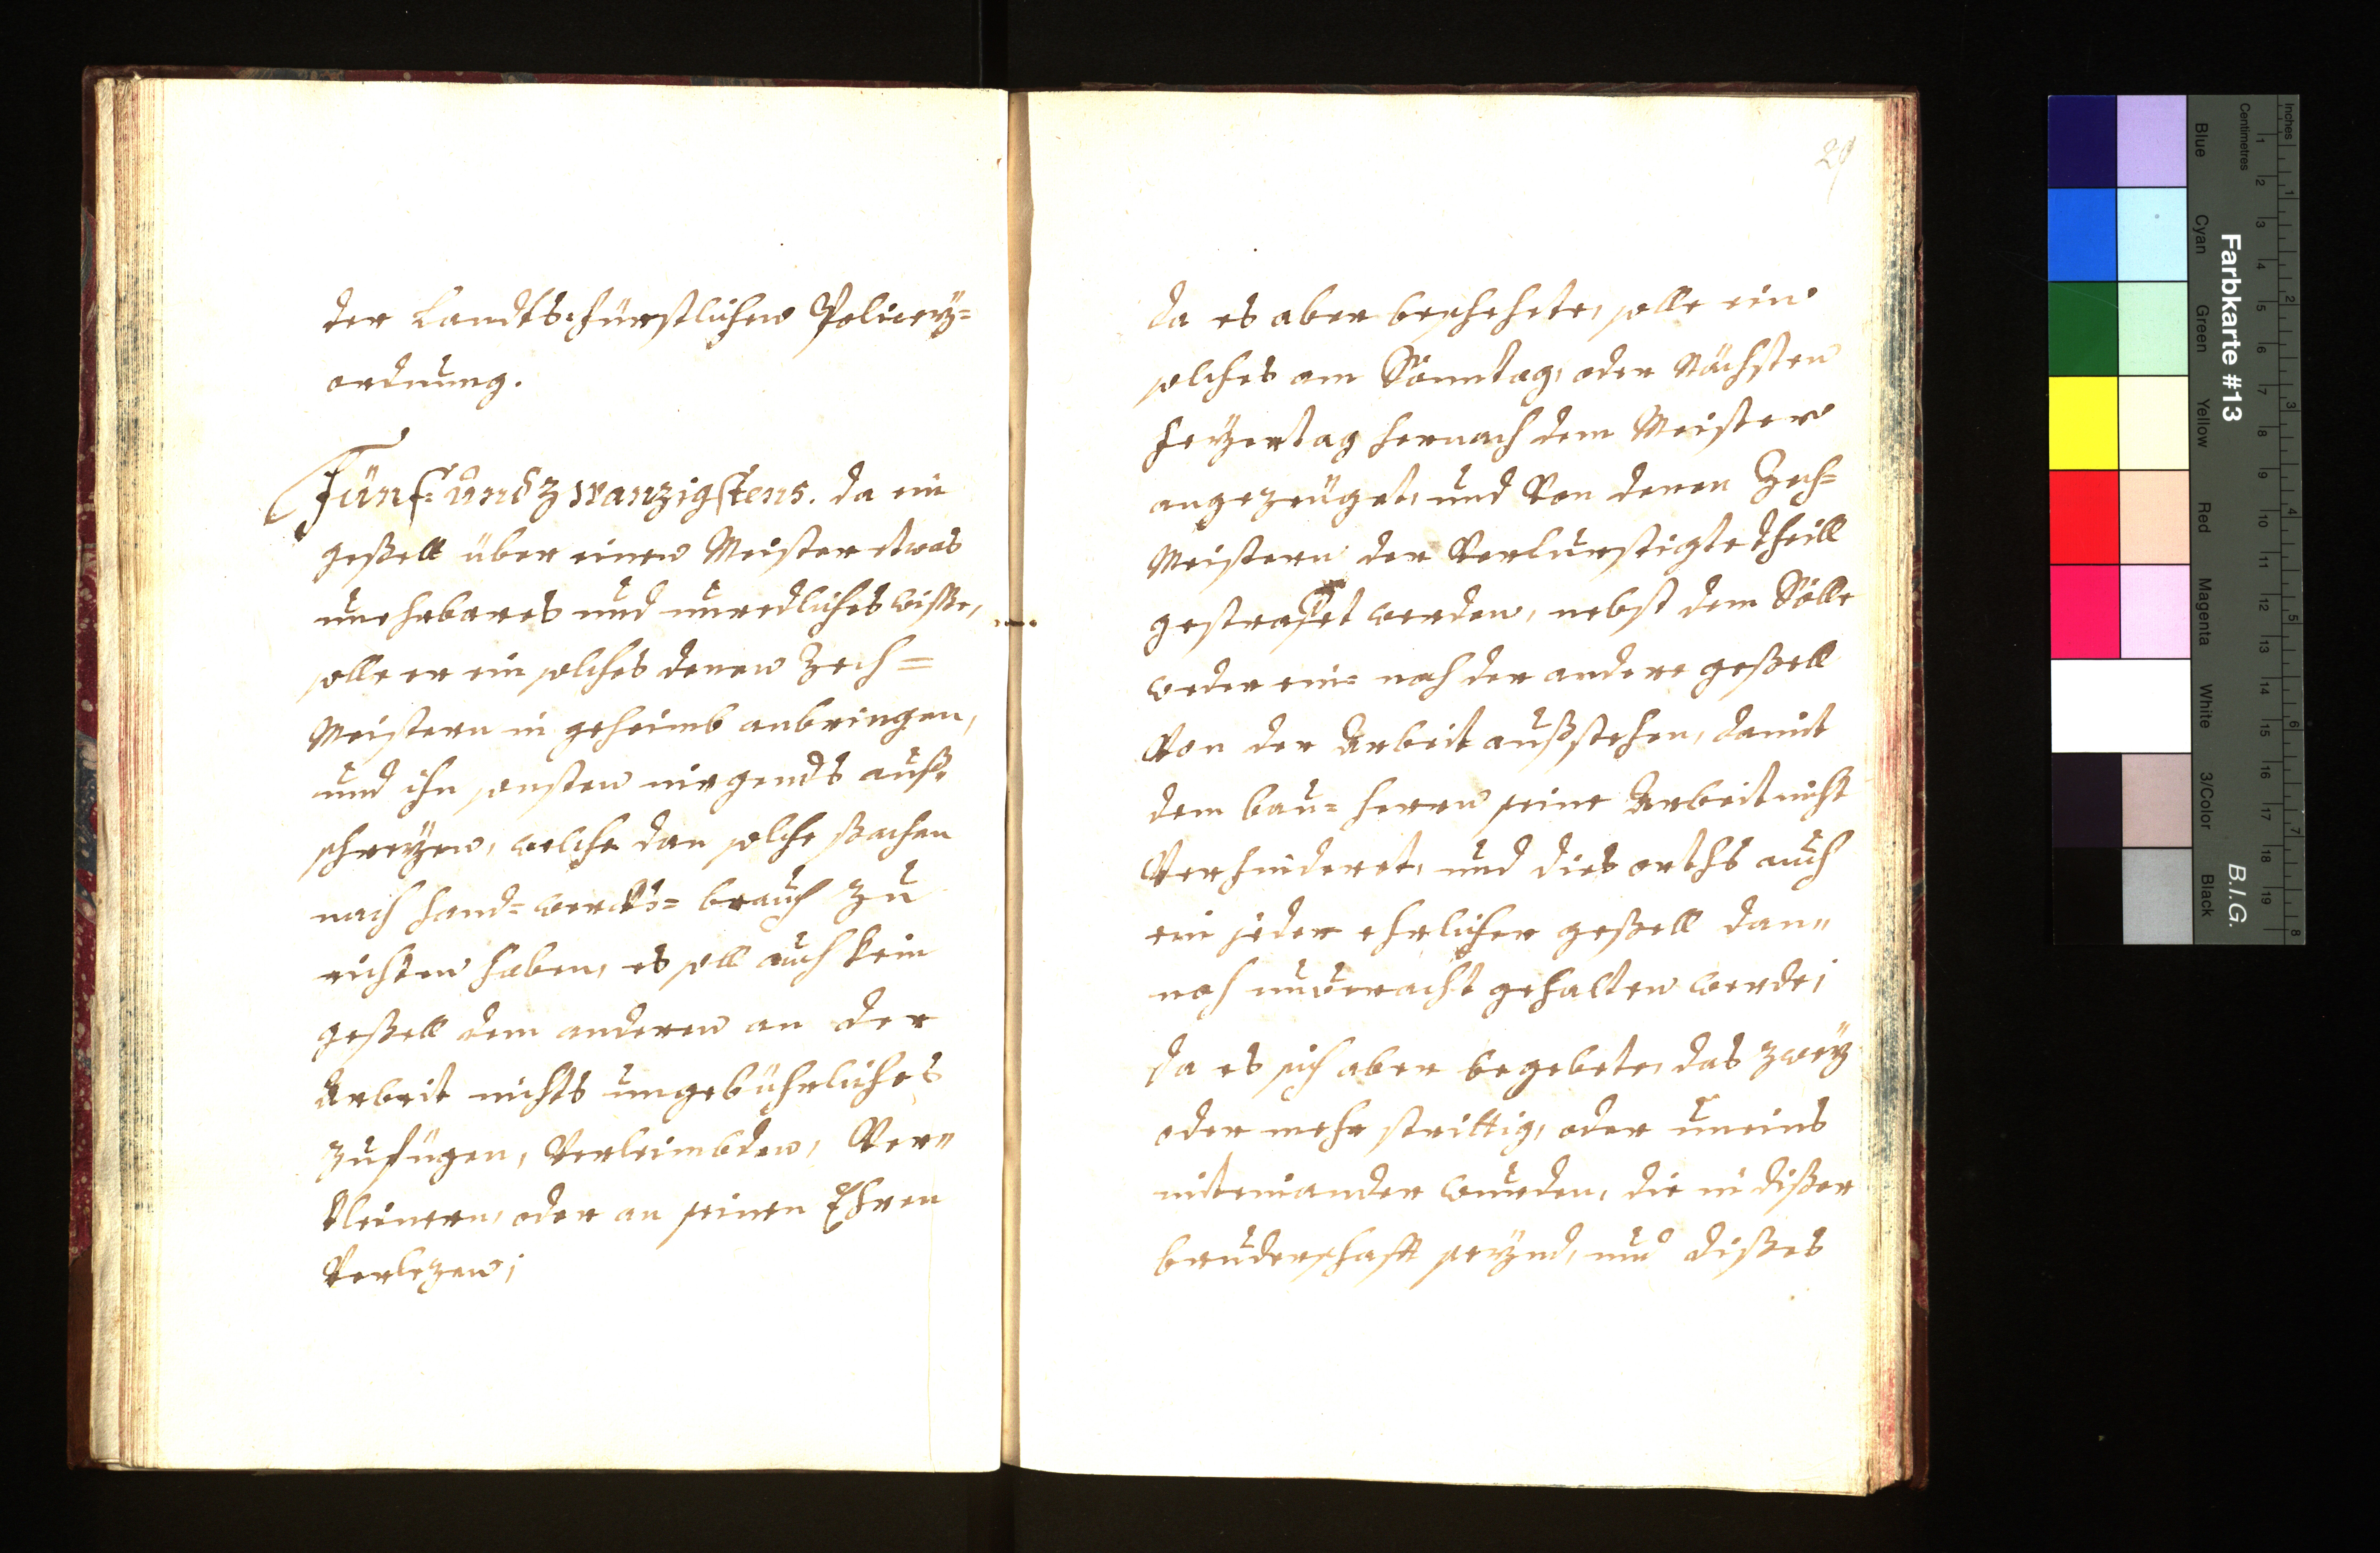 der Landts-fürstlichen Policey=
ordnung.
Fünf: undzwanzigstens. da ein
geßell über einen Meister etwas
unehrbares und unredliches wiße,
solle er ein solches denen Zech=
Meistern in geheimb anbringen,
und ihn sonsten nirgendts auß
schreyen, welche dan solche sachen
nach hand= wercks= brauch zu
richten haben, es soll auch kein
geßell dem anderen an der
Arbeit nichts ungebührliches
zufügen, Verleimbden, Ver"
kleinern, oder an seinen Ehren
Verlezen;
29
da es aber beschehete, solle ein
solches am Sonntag, oder Nächsten
Feyertag hernach dem Meister
angezeüget, und Von denen Zech=
Meistern der Verlurstigte theill
gestrafet werden, nebst dem Sölle
weder ein= noch der andere geßell
Von der Arbeit außstehen, damit
dem bau= herrn seine Arbeit nicht
Verhinderet, und dies orths auch
ein jeder ehrlicher geßell dan"
noch unveracht gehalten werde;
da es sich aber begebete, das zwey
oder mehr strittig, oder uneins
miteinander wurden, die in dißer
bruderschafft seynd, und dißes
Inches
Centimetres
Blue
Cyan
Green
Yellow
Red
Magenta
White
3/Color
Black
Farbkarte #13
B.I.G.
1 2 3 4 5 6 7 8 9 10 11 12 13 14 15 16 17 18 19
1 2 3 4 5 6 7 8